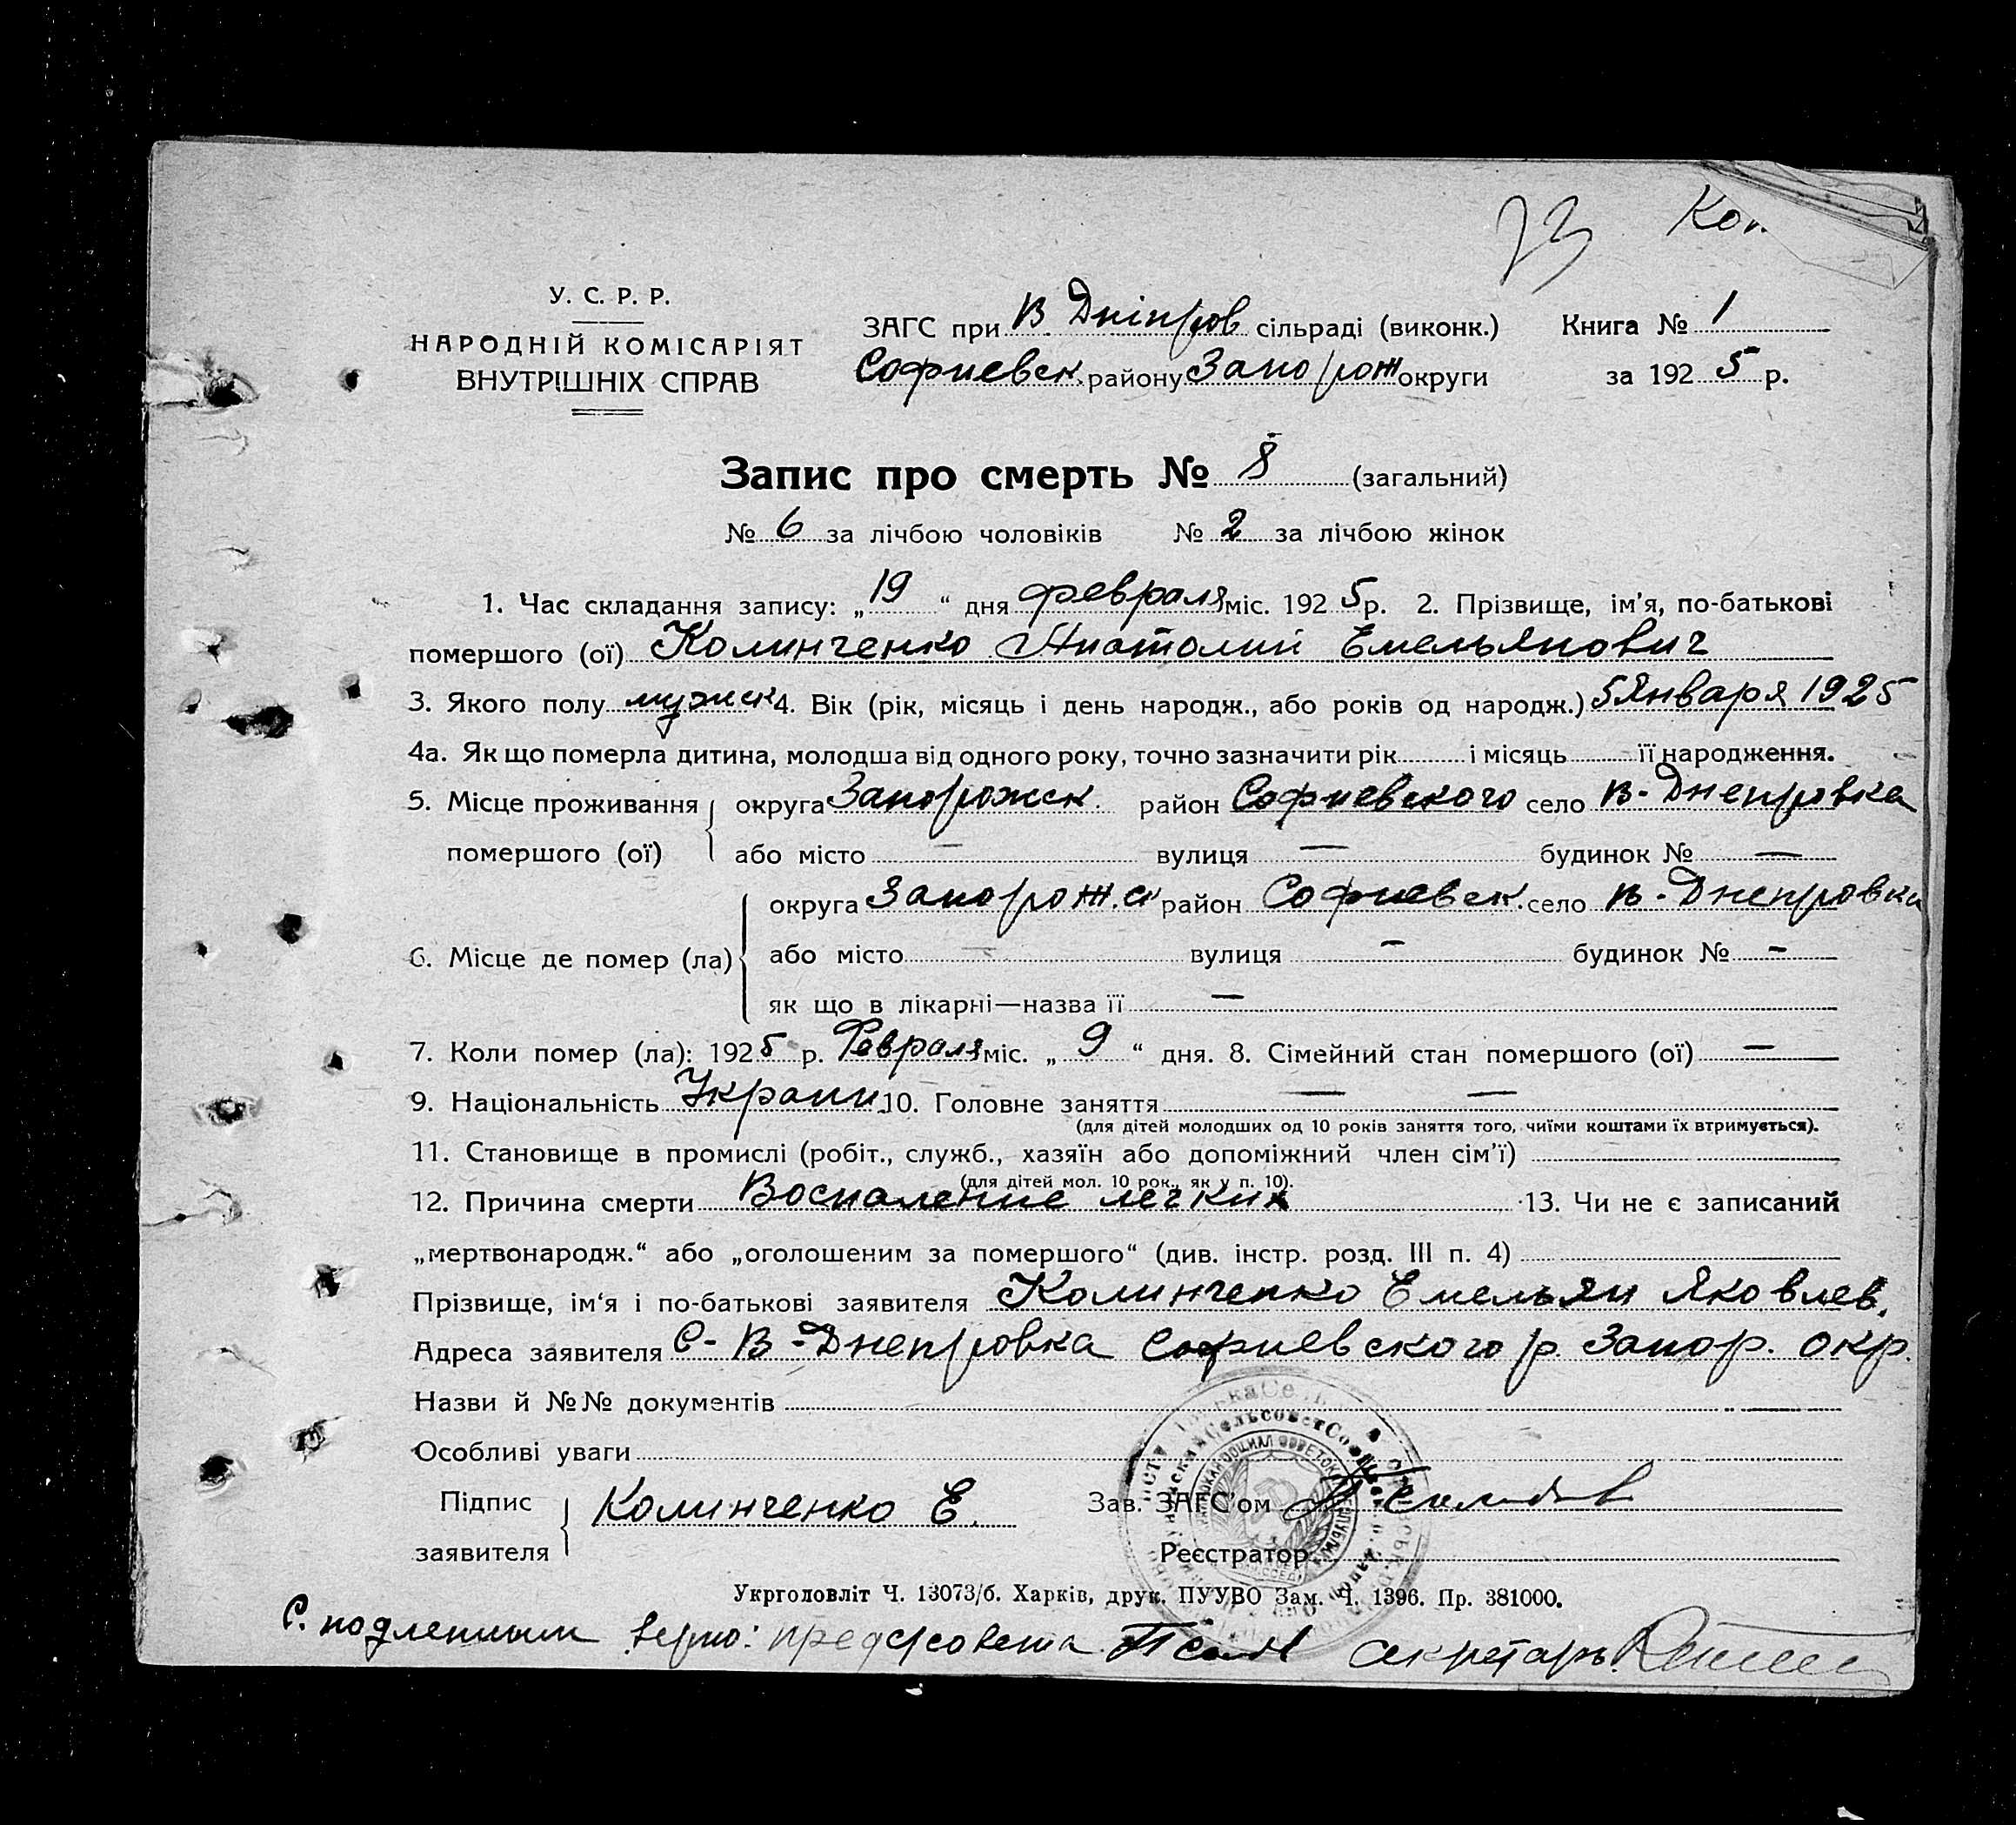 73 Коп
У. С. Р. Р.
НАРОДНІЙ КОМІСАРІЯТ
ВНУТРІШНІХ СПРАВ
ЗАГС при В Дніпров сільраді (виконк.) Книга № 1
Софиевск. району Запорож округи за 1925 р.
Запис про смерть № 8 (загальний)
№ 6 за лічбою чоловіків № 2 за лічбою жінок
1. Час складання запису: „19“ дня февраля міс. 1925 р. 2. Прізвище, ім'я, по-батькові
помершого (ої) Калинченко Анатолий Емельянович
3. Якого полу мужск 4. Вік (рік, місяць і день народж., або років од народж.) 5 Января 1925
4а. Як що померла дитина, молодша від одного року, точно зазначити рік і місяць її народження.
5. Місце проживання округа Запорожск. район Софиевского село В-Днепровка
помершого (ої) або місто — вулиця — будинок № —
округа Запорож.ск район Софиевск. село В-Днепровка
6. Місце де помер (ла) або місто — вулиця — будинок № —
як що в лікарні—назва її —
7. Коли помер (ла): 1925 р. Февраля міс. „9“ дня. 8. Сімейний стан помершого (ої) —
9. Національність Украин 10. Головне заняття — —
(для дітей молодших од 10 років заняття того, чиїми коштами їх втримується).
11. Становище в промислі (робіт., служб., хазяїн або допоміжний член сім'ї)
(для дітей мол. 10 рок., як у п. 10).
12. Причина смерти Воспаление легких 13. Чи не є записаний
„мертвонародж.“ або „оголошеним за помершого“ (див. інстр. розд. III п. 4)
Прізвище, ім'я і по-батькові заявителя Калинченко Емельян Яковлев.
Адреса заявителя С-В-Днепровка Софиевского р. Запор. окр.
Назви й №№ документів
Особливі уваги
Підпис Калинченко Е. Зав. ЗАГС'ом
заявителя Реєстратор
Укрголовліт Ч. 13073/б. Харків, друк. ПУУВО Зам. Ч. 1396. Пр. 381000.
С. подленным верно: предсровета секретарь